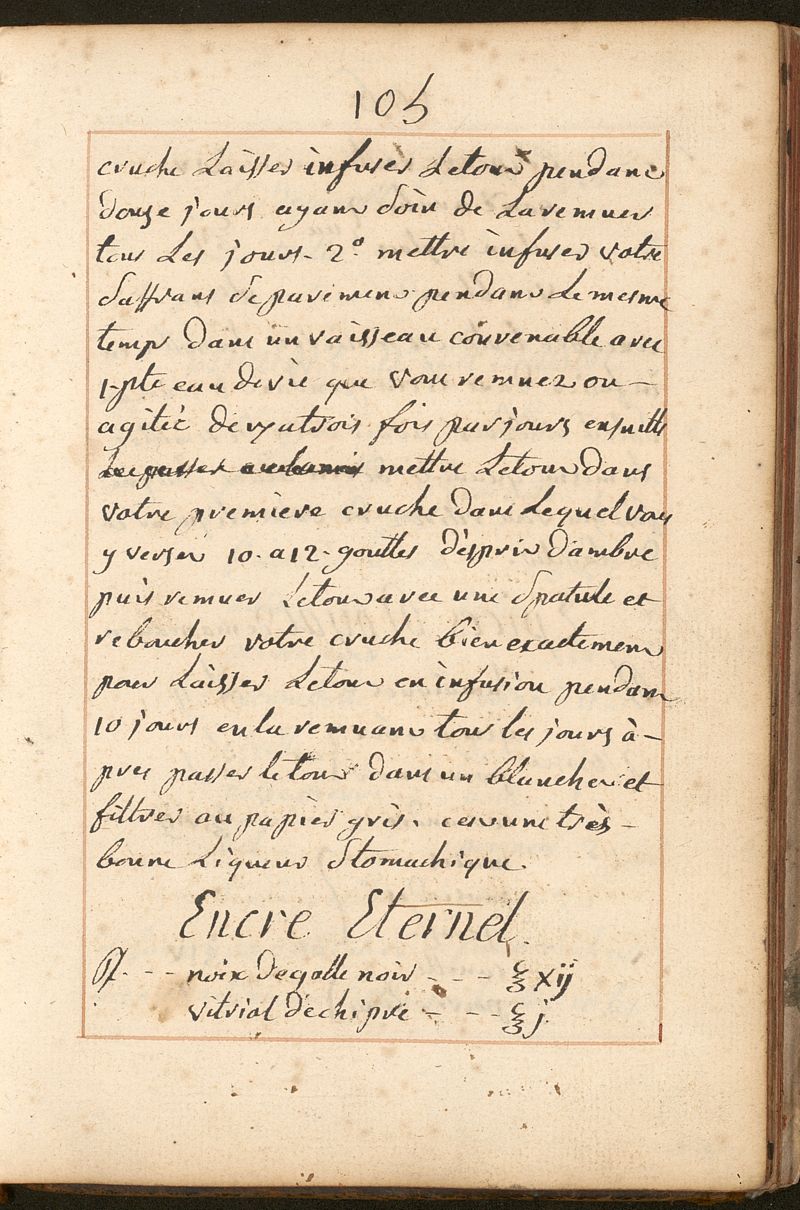 105
cruche Laisser infuser Letout pendant
douze jours ayant Soin de La remuer
tous Les jours. 2° mettre infuser votre
Saffrans de pavement pendant Le mesme
temps dans un vaisseau convenable avec
1-pte eau de vie que vous remuez ou -
agitéé de 2 at rois fois par jours ensuitte
mettre Letout dans
votre premiere cruche dans Lequel vous
y verser 10. a 12. gouttes d'esprit d'ambre
puis remuer Letout avec une Spatule et
reboucher votre cruche bien exactement
pour Laisser Letout en infusion pendant
10 jours en la remuant tous les jours à -
pres passer le tout dans un blanchet et
filtrer au papier gris. cest une très -
bonne Liqueur Stomachique.
Encre Eternel.
℞. - - noix de galle noir - - - ℥ xij
vitriol de chipre - - - ℥ j.